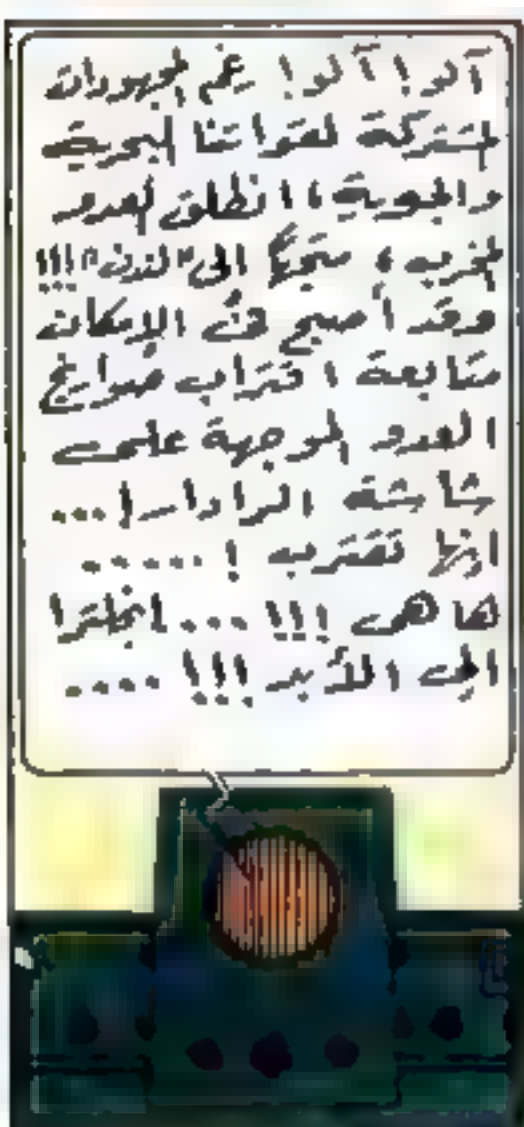 آلو! آلو! رغم المجهودات
المشتركة لقواتنا البحرية
والجوية، انطلق العدو
المخرب، متجهًا إلى "لندن"!!!
وقد أصبح من الإمكان
متابعة اقتراب صواريخ
العدو الموجهة على
شاشة الرادار!...
إنها تقترب!.....
ها هى!!!... إنجلترا
إلى الأبد!!!....